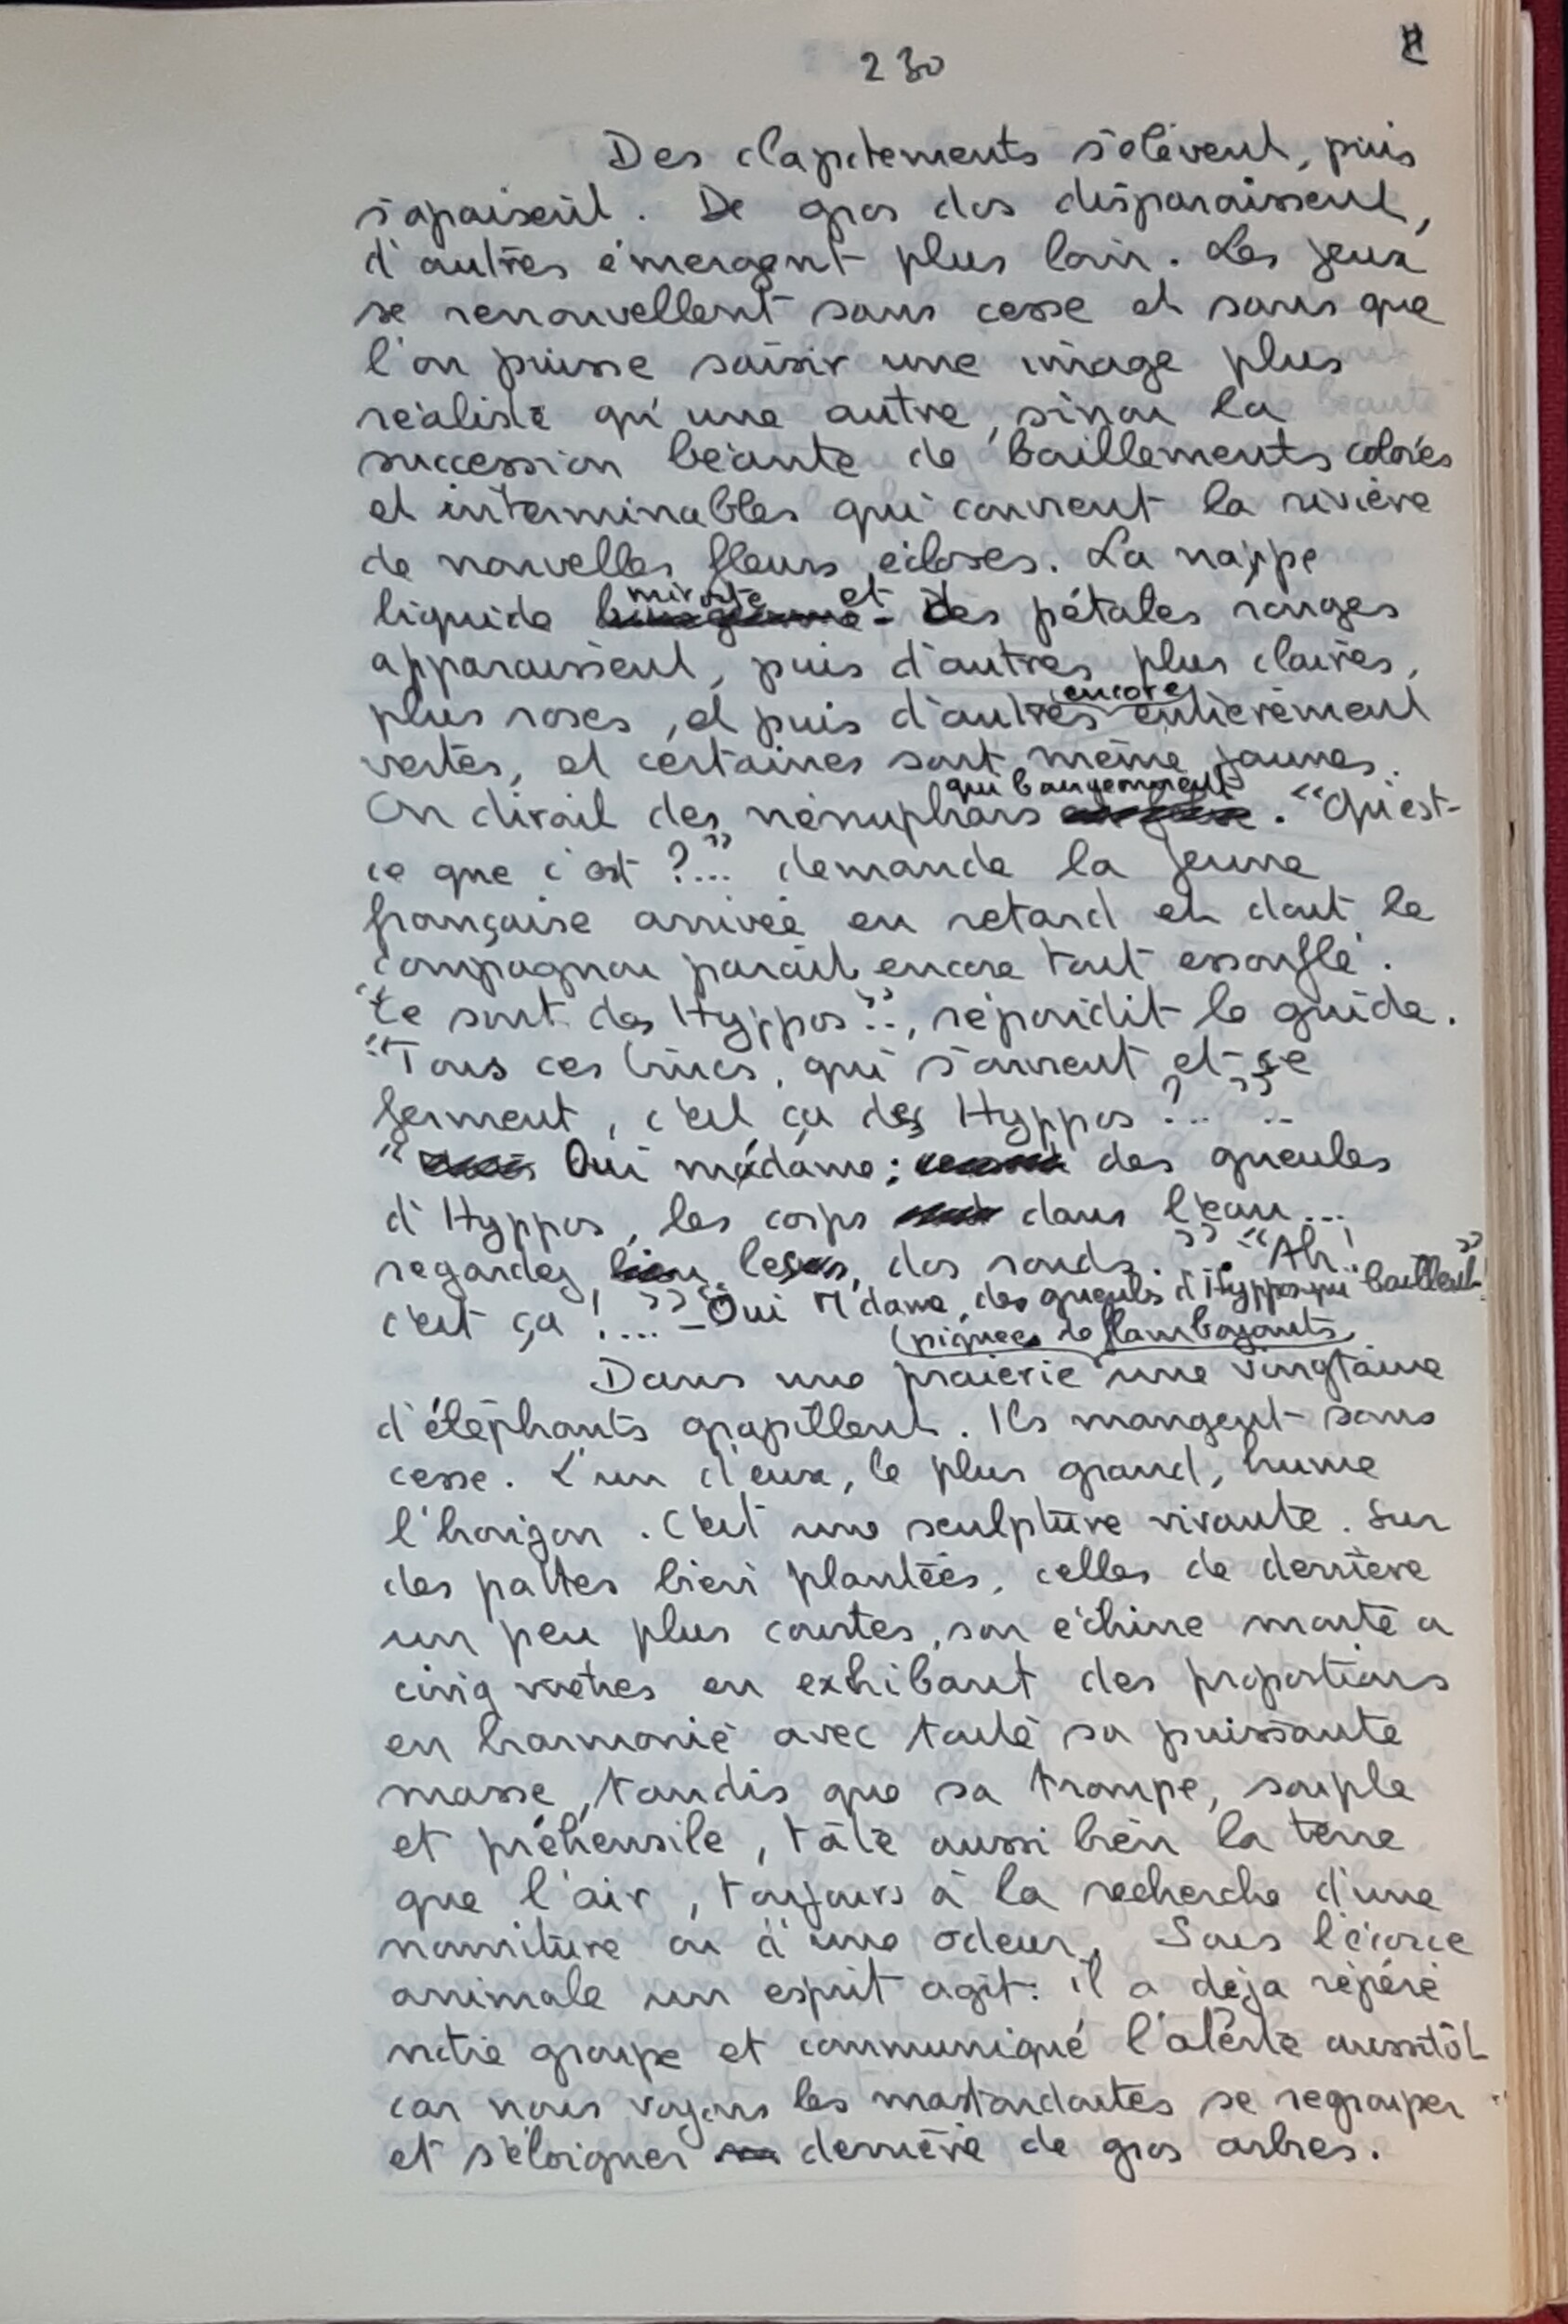 230
Des clapotements s'élèvent, puis
s'apaisent. De gros dos disparaissent,
d'autres émergent plus loin. Les jeux
se renouvellent sans cesse et sans que
l'on puisse saisir une image plus
réaliste qu'une autre, sinon la
succession béante de baillements colorés
et interminables qui couvrent la rivière
de nouvelles fleurs écloses. La nappe
liquide miroite et des pétales rouges
apparaissent, puis d'autres plus claires,
plus roses, et puis d'autres encore entièrement
vertes, et certaines sont même jaunes.
On dirait des nénuphars qui bougent. "Qu'est-
ce que c'est ?..." demande la jeune
française arrivée en retard et dont le
compagnon paraît encore tout essouflé.
"Ce sont des Hyppos"..., répondit le guide.
"Tous ces trucs, qui s'ouvrent et se
ferment, c'est ça des Hyppos ?..."
"Oui mádáme; des gueules
d'Hyppos, les corps dans l'eau...
regardez les dos ronds." "Ah !
c'est ça !..." - "Oui M'dame, des gueules d'Hyppos qui baillent!"
Dans une praierie piquée de flamboyants une vingtaine
d'éléphants grapillent. Ils mangent sans
cesse. L'un d'eux, le plus grand, hume
l'horizon. C'est une sculpture vivante. Sur
des pattes bien plantées, celles de derrière
un peu plus courtes, son échine monte a
cinq mètres en exhibant des proportions
en harmonie avec toute sa puissante
masse, tandis que sa trompe, souple
et préhensile, tâte aussi bien la terre
que l'air, toujours à la recherche d'une
nourriture ou d'une odeur. Sous l'écorce
animale un esprit agit: il a déja répéré
notre groupe et communiqué l'alerte aussitôt
car nous voyons les mastondontes se regrouper
et s'éloigner derrière de gros arbres.